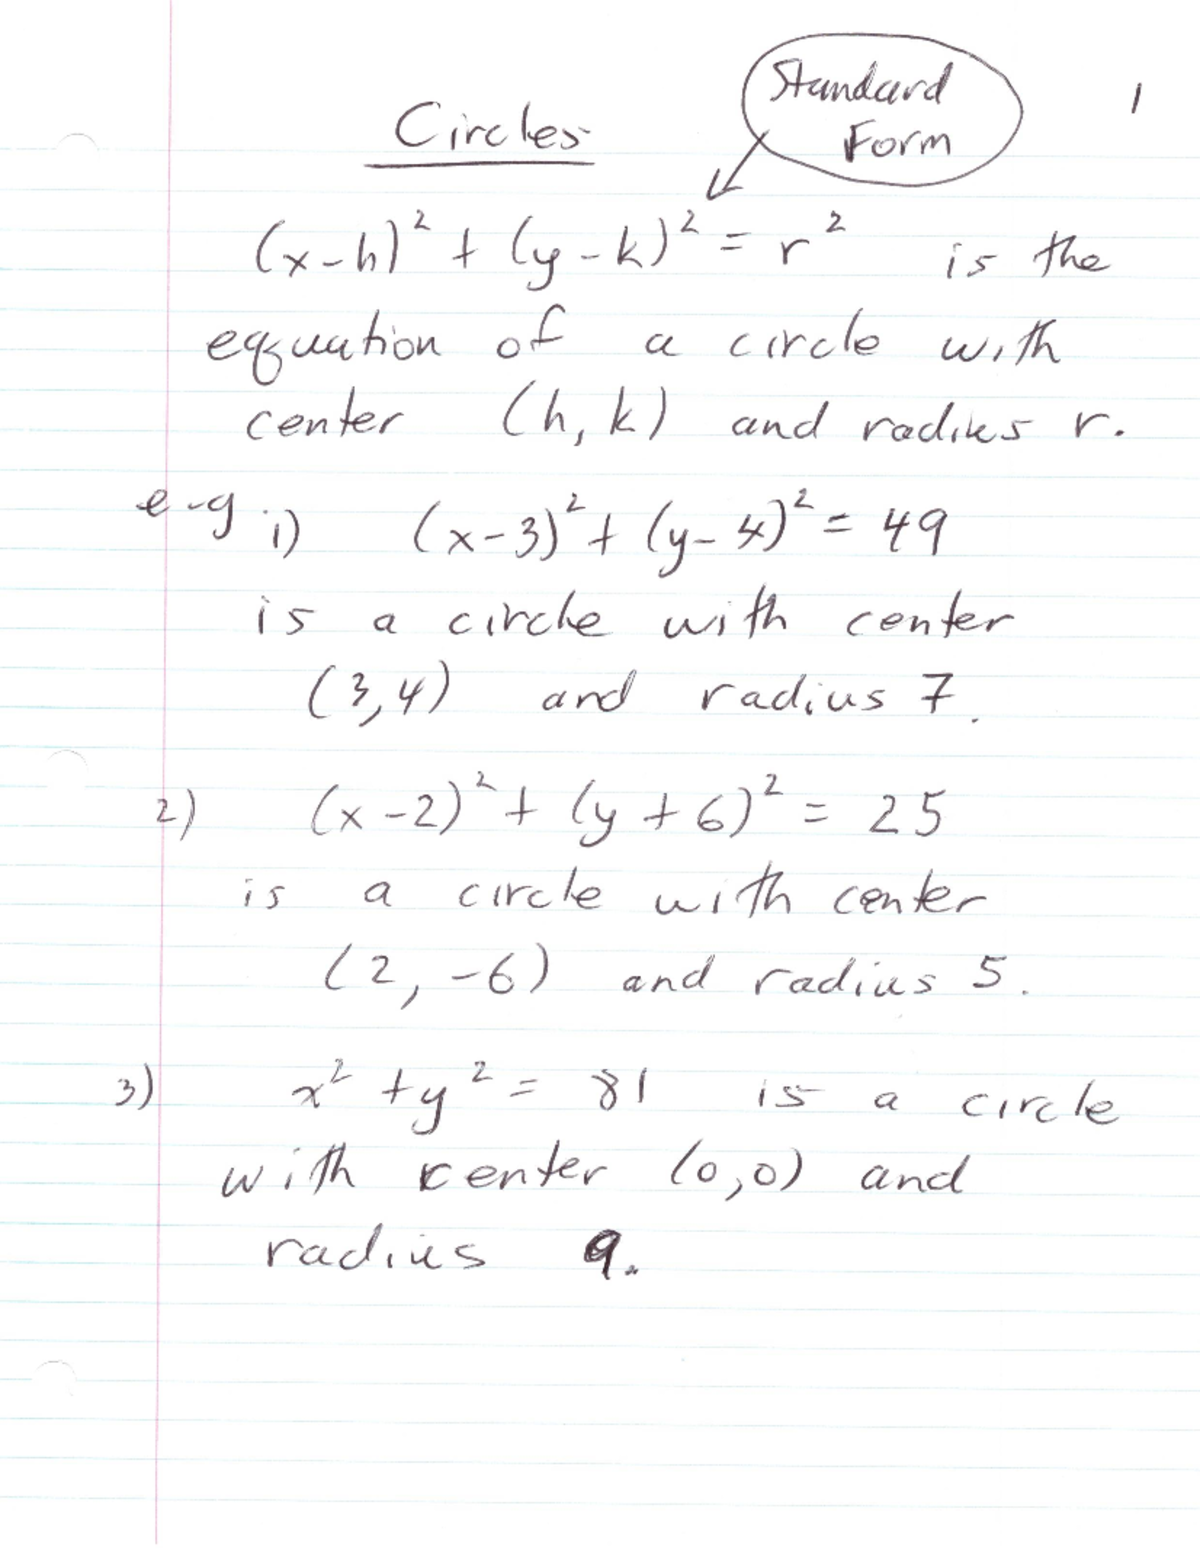 Standard
Form
1
Circles
(x-h)² + (y-k)² = r² is the
equation of a circle with
center (h, k) and radius r.
e-g 1) (x-3)² + (y-4)² = 49
is a circle with center
(3,4) and radius 7.
2) (x-2)² + (y+6)² = 25
is a circle with center
(2, -6) and radius 5.
3) x² + y² = 81 is a circle
with center (0,0) and
radius 9.